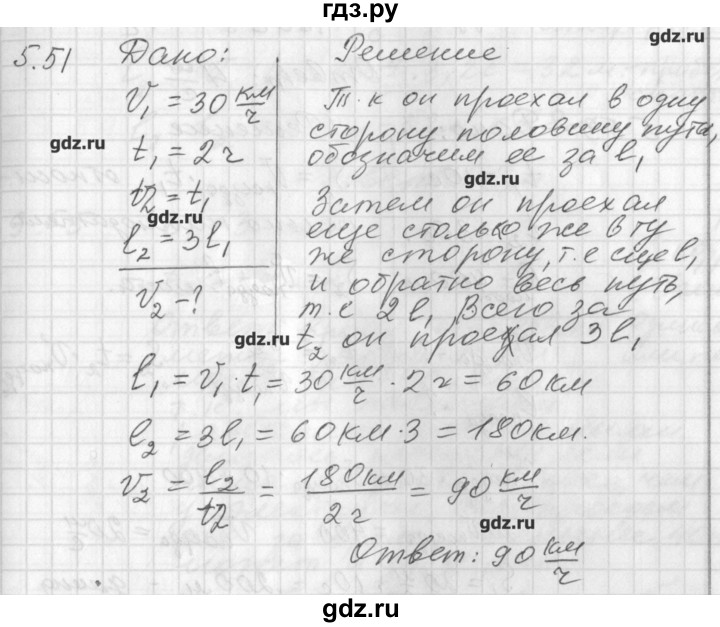 гдз.ру
gdz.ru
5.51 Дано:
V₁ = 30 км/ч
gdz.ru
t₁ = 2 ч
t2 = t₁
gdz.ru
l₂ = 3l₁
V₂ - ?
Решение
Т.к он проехал в одну
сторону половину пути,
обозначим ее за l₁
gdz.ru
Затем он проехал
еще столько же в ту
же сторону, т.е еще l₁
и обратно весь путь,
т.е 2l₁ Всего за
t₂ он проехал 3l₁
gdz.ru
l₁ = V₁ · t₁ = 30 км/ч · 2 ч = 60 км
l₂ = 3l₁ = 60 км · 3 = 180 км.
V₂ = l₂/t2 = 180 км/2 ч = 90 км/ч
gdz.ru
Ответ: 90 км/ч
gdz.ru